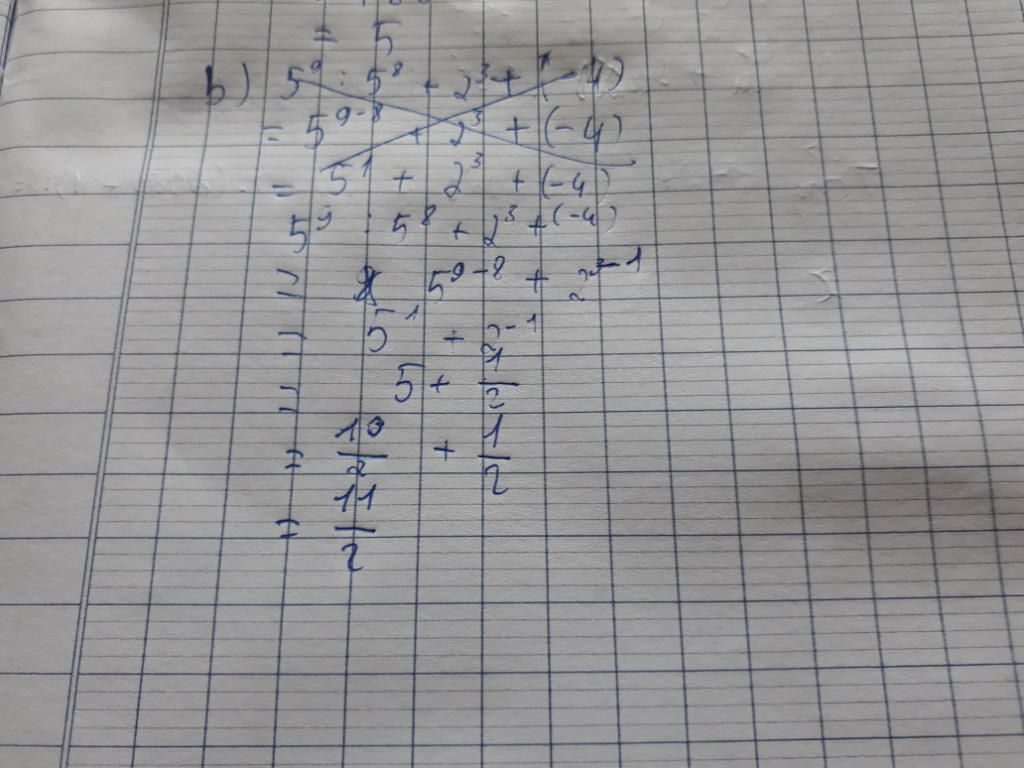 = 5
b) 5⁹ : 5⁸ + 2³ + (-4)
= 5⁹⁻⁸ + 2³ + (-4)
= 5¹ + 2³ + (-4)
5⁹ : 5⁸ + 2³ ⁺ ⁽⁻⁴⁾
= 5⁹⁻⁸ + 2
= 5¹ + 2⁻¹
= 5 + 1/2
= 10/2 + 1/2
= 11/2